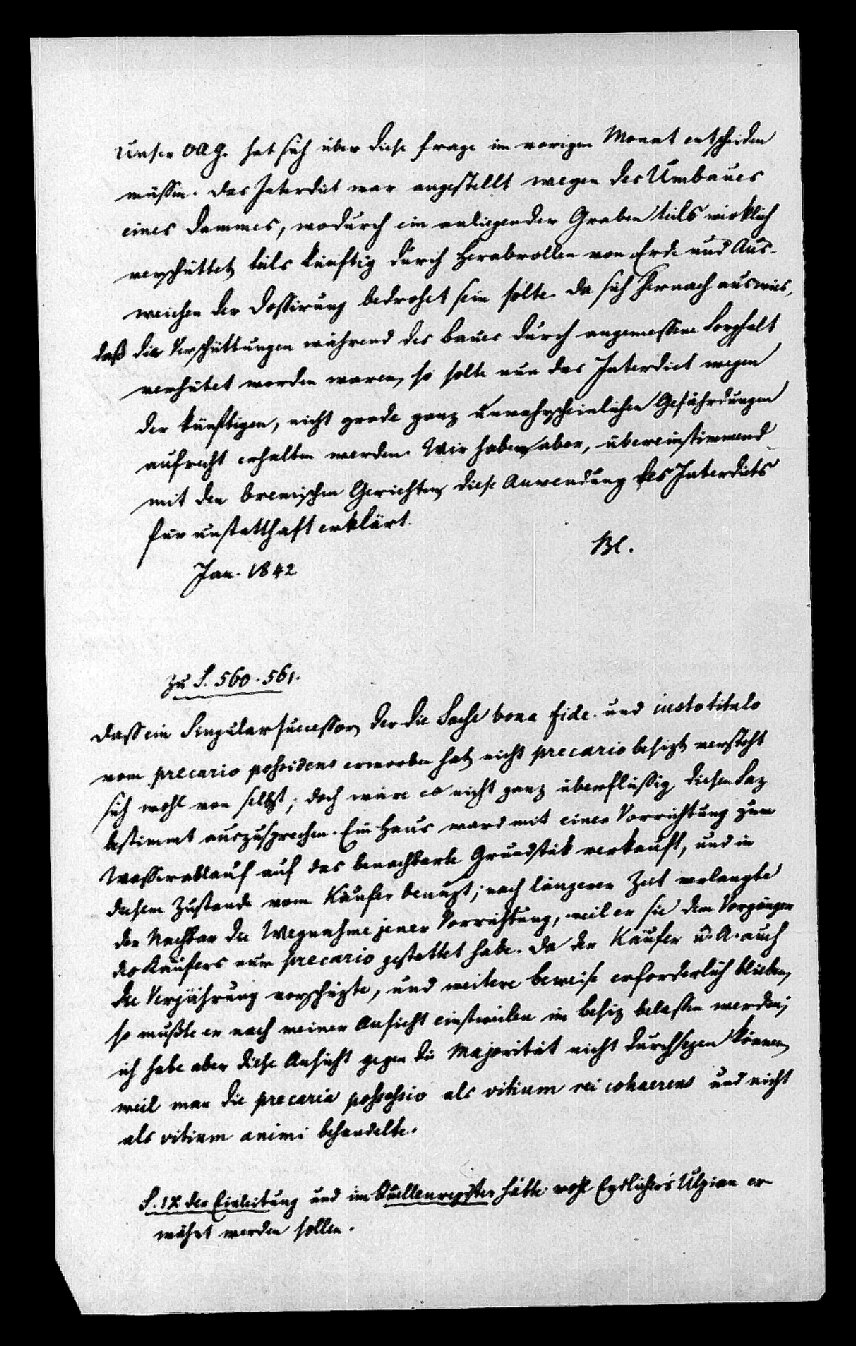 Unser OAG. hat sich über diese Frage im vorigen Monat entscheiden
müssen. Das Interdict war angestellt wegen des Umbaues
eines Dammes, wodurch ein anliegender Graben teils wirklich
verschüttet, teils künftig durch Herabrollen von Erde und Aus-
weichen der Dossirung bedrohet sein solte. Da sich hernach auswies,
daß die Verschüttungen während des baues durch angemessene Sorgfalt
verhütet worden waren, so solte nun das Interdict wegen
der künftigen, nicht grade ganz unwahrscheinlichen Gefährdungen
aufrecht erhalten werden. Wir haben aber, übereinstimmend
mit den bremischen Gerichten, diese Anwendung des Interdicts
für unstatthaft erklärt.
Jan. 1842 Bl.
zu S. 560. 561.
Dass ein Singularsuccessor, der die Sache bona fide und iusto titulo
vom precario possidens erworben hat, nicht precario besizt, versteht
sich wohl von selbst; doch wäre es nicht ganz überflüssig, diesen Saz
bestimmt auszusprechen. Ein Haus ward mit einer Vorrichtung zum
Wasserablauf auf das benachbarte Grundstük verkauft, und in
diesem Zustande vom Käufer benuzt; nach längerer Zeit verlangte
der Nachbar die Wegnahme jener Vorrichtung, weil er sie dem Vorgänger
des Käufers nur precario gestattet habe. Da der Käufer u. A. auch
die Verjährung vorschüzte, und weitere beweise erforderlich blieben,
so mußte er nach meiner Ansicht einstweilen im besiz belassen werden;
ich habe aber diese Ansicht gegen die Majorität nicht durchsezen können,
weil man die precaria possessio als vitium rei cohaerens und nicht
als vitium animi behandelte.
S. IX der Einleitung und im Quellenregister hätte wohl Eydlichers Ulpian er-
wähnt werden sollen.